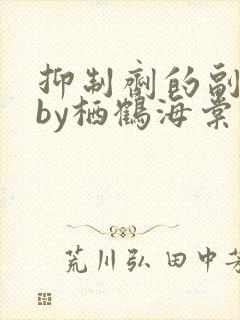 抑制剂的副
by栖鹤海棠
荒川弘 田中芳